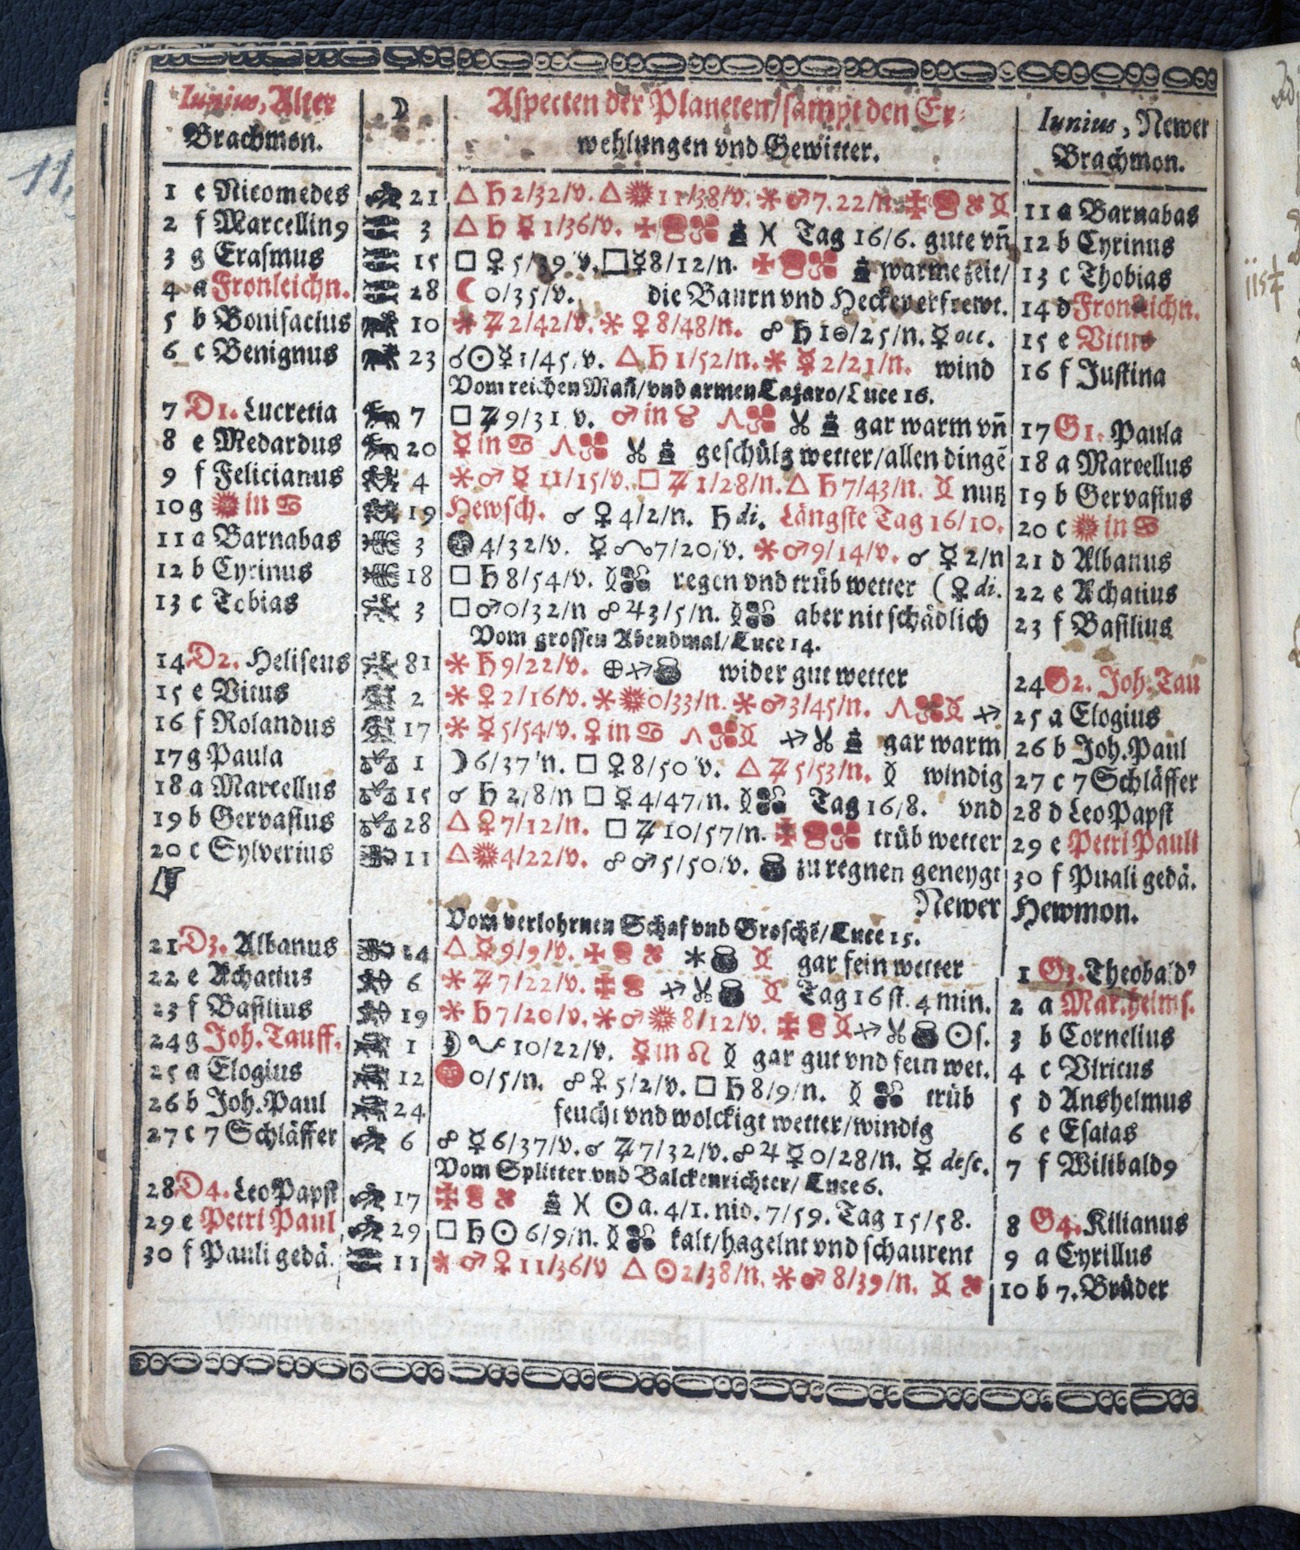 Iunius, Alter
Brachmon.
☽
Aspecten der Planeten/sampt den Er-
wehlungen vnd Gewitter.
Iunius, Newer
Brachmon.
1 e Nicomedes 21 △ ♄ 2/32/v. △ ☀ 11/38/v. ⚹ ♂ 7.22/n.
11 a Barnabas
2 f Marcellin9 3 △ ♄ ☿ 1/36/v. ♓ Tag 16/6. gute vñ
12 b Cyrinus
3 g Erasmus 15 □ ♀ 5/ 9 v. □ ☿ 8/12/n. warme zeit/
13 c Thobias
4 a Fronleichn. 28 ☾ 0/35/v. die Baurn vnd Hecker erfrewt.
14 d Fronleichn.
5 b Bonifacius 10 ⚹ ♃ 2/42/v. ⚹ ♀ 8/48/n. ☍ ♄ 10/25/n. ☿ occ.
15 e Vitus
6 c Benignus 23 ☌ ☉ ☿ 1/45/v. △ ♄ 1/52/n. ⚹ ☿ 2/21/n. wind
16 f Justina
Vom reichen Mañ/vnd armen Lazaro/Luce 16.
7 D1. Lucretia 7 □ ♃ 9/31 v. ♂ in ♉ gar warm vñ
17 G1. Paula
8 e Medardus 20 ☿ in ♋ geschülg wetter/allen dingē
18 a Marcellus
9 f Felicianus 4 ⚹ ♂ ☿ 11/15/v. □ ♃ 1/28/n. △ ♄ 7/43/n. nutz
19 b Gervasius
10 g ☀ in ♋ 19 Hewsch. ☌ ♀ 4/2/n. ♄ di. Längste Tag 16/10.
20 c ☀ in ♋
11 a Barnabas 3 4/32/v. ☿ 7/20/v. ⚹ ♂ 9/14/v. ☌ ☿ 2/n
21 d Albanus
12 b Cyrinus 18 □ ♄ 8/54/v. regen vnd trüb wetter ( ♀ di.
22 e Achatius
13 c Tobias 3 □ ♂ 0/32/n ☍ ♃ 3/5/n. aber nit schädlich
23 f Basilius
Vom grossen Abendmal/Luce 14.
14 D2. Heliseus 81 ⚹ ♄ 9/22/v. ⊕ ♐ wider gut wetter
24 G2. Joh. Tau
15 e Vitus 2 ⚹ ♀ 2/16/v. ⚹ ☀ 0/33/n. ⚹ ♂ 3/45/n. ♐
25 a Elogius
16 f Rolandus 17 ⚹ ☿ 5/54/v. ♀ in ♋ ♐ gar warm
26 b Joh. Paul
17 g Paula 1 ☽ 6/37 n. □ ♀ 8/50 v. △ ♃ 5/53/n. windig
27 c 7 Schläffer
18 a Marcellus 15 ☌ ♄ 2/8/n □ ☿ 4/47/n. Tag 16/8. vnd
28 d Leo Papst
19 b Gervasius 28 △ ♀ 7/12/n. □ ♃ 10/57/n. trüb wetter
29 e Petri Pauli
20 c Sylverius 11 △ ☀ 4/22/v. ☍ ♂ 5/50/v. zu regnen geneygt
30 f Puali gedä.
Newer Hewmon.
Vom verlohrnen Schaf vnd Groschē/Luce 15.
21 D3. Albanus 24 △ ☿ 9/9/v. gar fein wetter
1 G3. Theobald'
22 e Achatius 6 ⚹ ♃ 7/22/v. ♐ Tag 16 st. 4 min.
2 a Mar. heims.
23 f Basilius 19 ⚹ ♄ 7/20/v. ⚹ ♂ ☀ 8/12/v. ♐ ☉ s.
3 b Cornelius
24 g Joh. Tauff. 1 10/22/v. ☿ in ♌ gar gut vnd fein wet.
4 c Vlricus
25 a Elogius 12 0/5/n. ☍ ♀ 5/2/v. □ ♄ 8/9/n. trüb
5 d Anshelmus
26 b Joh. Paul 24 feucht vnd wolckigt wetter/windig
6 e Esaias
27 c 7 Schläffer 6 ☍ ☿ 6/37/v. ☌ ♃ 7/32/v. ☍ ♃ ☿ 0/28/n. ☿ desc.
7 f Wilibald9
Vom Splitter vnd Balckenrichter/ Luce 6.
28 D4. Leo Papst 17 ♓ ☉ a. 4/1. nid. 7/59. Tag 15/58.
8 G4. Kilianus
29 e Petri Paul 29 □ ♄ ☉ 6/9/n. kalt/hagelnt vnd schaurent
9 a Cyrillus
30 f Pauli gedä. 11 ⚹ ♂ ♀ 11/36/v △ ☉ 2/38/n. ⚹ ♂ 8/39/n.
10 b 7. Brüder
11.